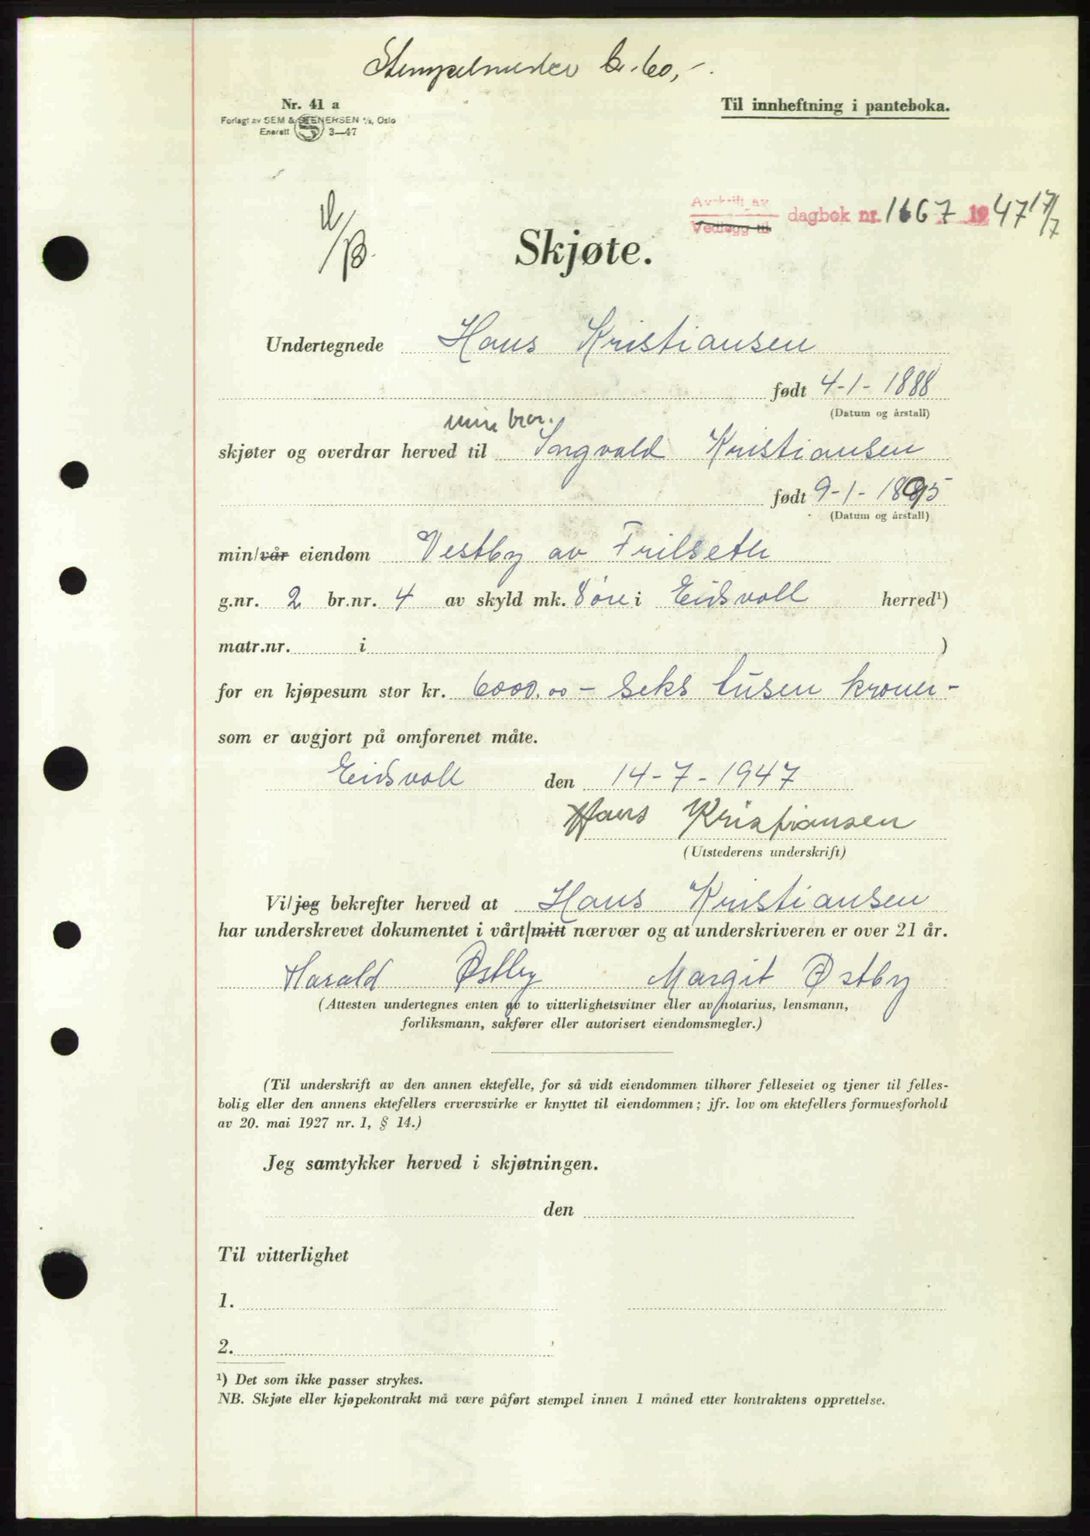 Stempelmerker kr. 60,-.
Nr. 41 a
Til innheftning i panteboka.
Forlagt av SEM & STENERSEN A/S, Oslo
Enerett S 3-47
Avskrift av
Vedlegg til
dagbok nr. 1667 1947 17/7
Skjøte.
Undertegnede Hans Kristiansen
født 4-1-1888
(Datum og årstall)
min bror.
skjøter og overdrar herved til Ingvald Kristiansen
født 9-1-1895
(Datum og årstall)
min/vår eiendom Vestby av Frilseth
g.nr. 2 br.nr. 4 av skyld mk. 8 øre i Eidsvoll herred¹)
matr.nr. i )
for en kjøpesum stor kr. 6000.00 - seks tusen kroner -
som er avgjort på omforenet måte.
Eidsvoll den 14-7-1947
Hans Kristiansen
(Utstederens underskrift)
Vi/jeg bekrefter herved at Hans Kristiansen
har underskrevet dokumentet i vårt/mitt nærvær og at underskriveren er over 21 år.
Harald Østby Margit Østby
(Attesten undertegnes enten av to vitterlighetsvitner eller av notarius, lensmann,
forliksmann, sakfører eller autorisert eiendomsmegler.)
(Til underskrift av den annen ektefelle, for så vidt eiendommen tilhører felleseiet og tjener til felles-
bolig eller den annens ektefellers ervervsvirke er knyttet til eiendommen; jfr. lov om ektefellers formuesforhold
av 20. mai 1927 nr. 1, § 14.)
Jeg samtykker herved i skjøtningen.
den
Til vitterlighet
1.
2.
¹) Det som ikke passer strykes.
NB. Skjøte eller kjøpekontrakt må være påført stempel innen 1 måned etter kontraktens opprettelse.